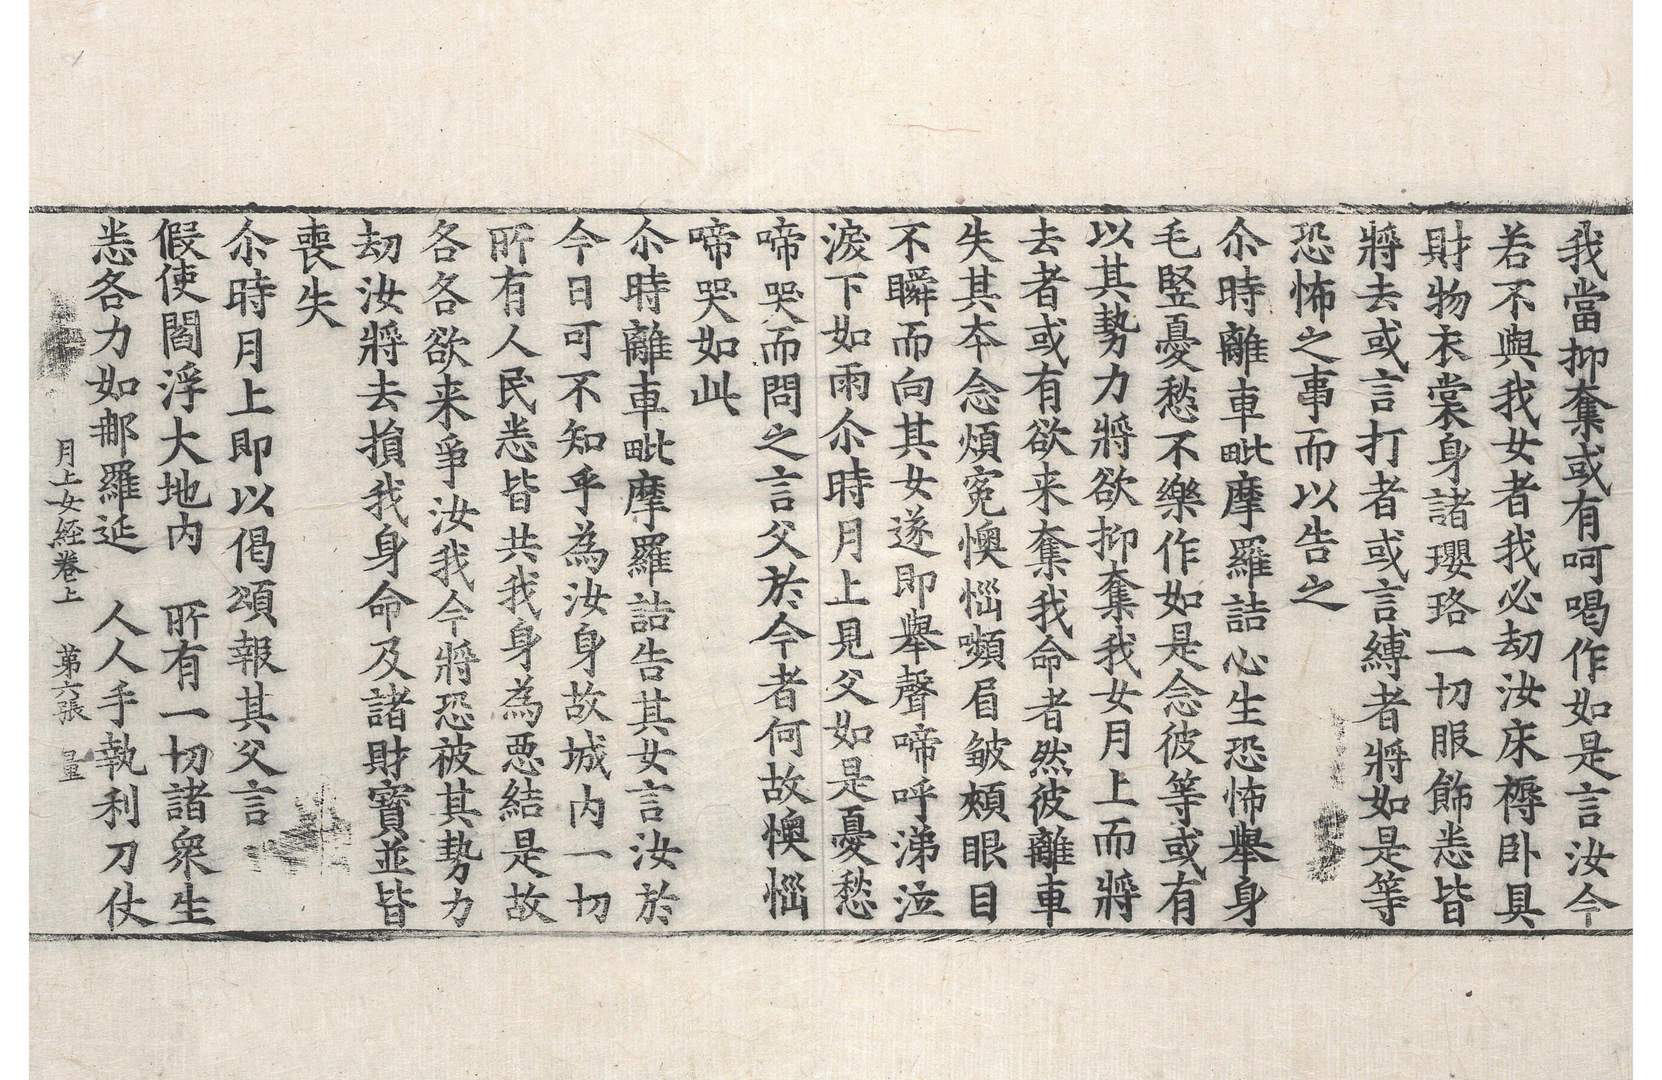 我當抑奪或有呵喝作如是言汝今
若不與我女者我必劫汝床褥卧具
財物衣裳身諸瓔珞一切服飾悉皆
將去或言打者或言縛者將如是等
恐怖之事而以告之
尒時離車毗摩羅詰心生恐怖舉身
毛竪憂愁不樂作如是念彼等或有
以其勢力將欲抑奪我女月上而將
去者或有欲来奪我命者然彼離車
失其夲念煩寃懊惱嚬眉皱頰眼目
不瞬而向其女遂即舉聲啼呼涕泣
淚下如雨尒時月上見父如是憂愁
啼哭而問之言父於今者何故懊惱
啼哭如此
尒時離車毗摩羅詰告其女言汝於
今日可不知乎為汝身故城内一切
所有人民悉皆共我身為惡結是故
各各欲来爭汝我今將恐被其勢力
劫汝將去損我身命及諸財寶並皆
喪失
尒時月上即以偈頌報其父言
假使閻浮大地内　所有一切諸衆生
悉各力如那羅延　人人手執利刀仗
月上女経卷上　第六張　量